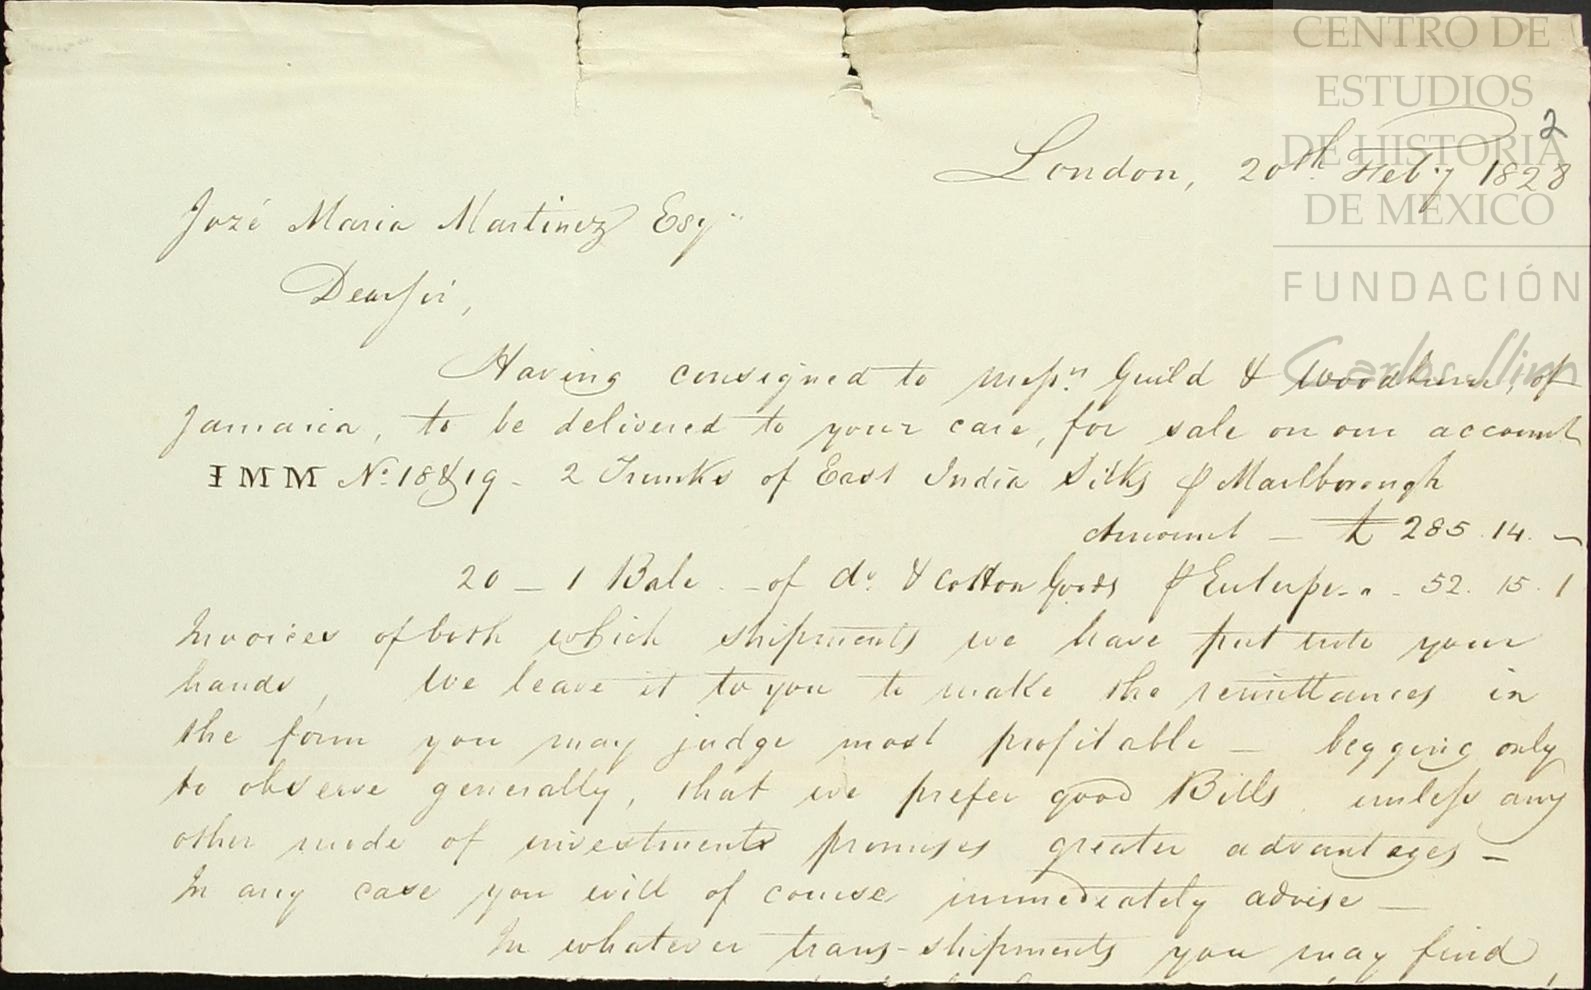 CENTRO DE
ESTUDIOS
DE HISTORIA
DE MÉXICO
FUNDACIÓN
Carlos Slim
2
London, 20th. Feb'y 1828
Jozé Maria Martinez Esq.r
Dear Sir,
Having consigned to Mess.rs Guild & of
Jamaica, to be delivered to your care, for sale on our account
IMM No. 18 & 19 - 2 Trunks of East India Silks p Marlborough
Amount — £ 285.14. -
20 — 1 Bale - of do. & Cotton Goods p Euterpe - - 52. 15. 1
Invoices of both which shipments we have put into your
hands, We leave it to you to make the remittances in
the form you may judge most profitable — begging only
to observe generally, that we prefer good Bills unless any
other mode of investments promises greater advantages —
In any case you will of course immediately advise —
In whatever trans-shipments you may find